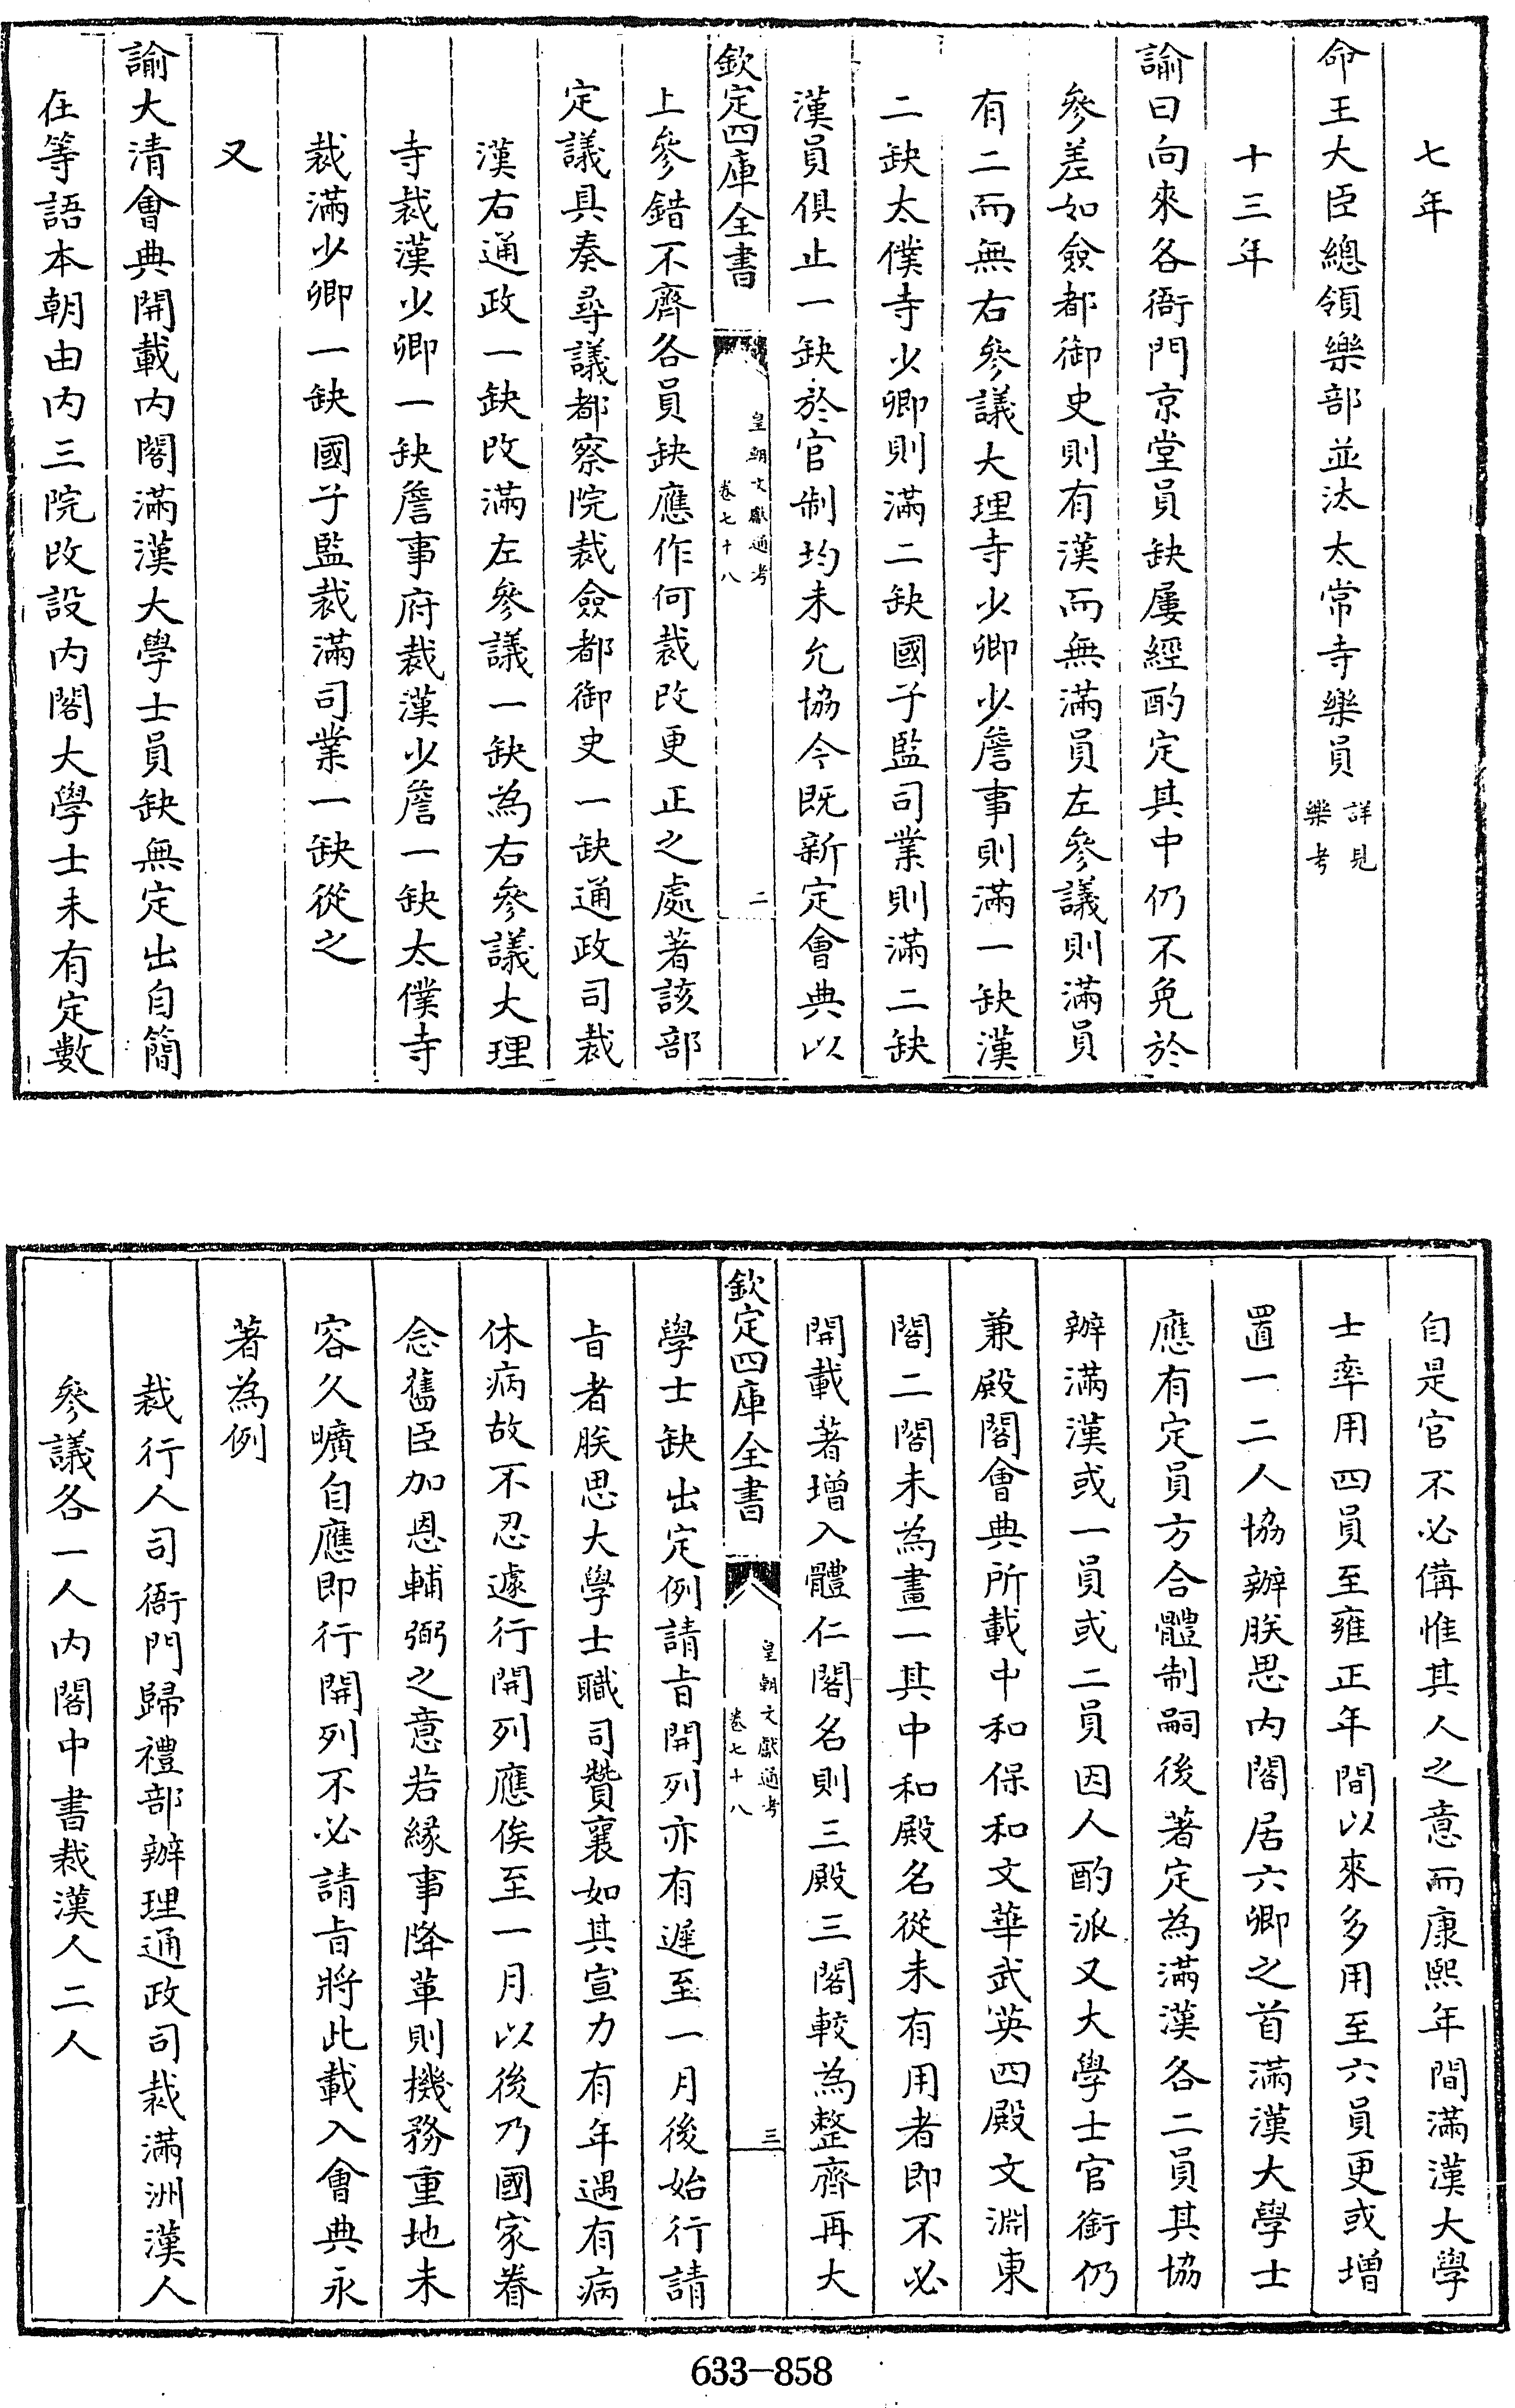 七年
命王大臣總領樂部並汰太常寺樂員詳見
樂考
十三年
諭曰向來各衙門京堂員缺屢經酌定其中仍不免於
參差如僉都御史則有漢而無滿員左參議則滿員
有二而無右參議大理寺少卿少詹事則滿一缺漢
二缺太僕寺少卿則滿二缺國子監司業則滿二缺
漢員俱止一缺於官制均未允協今既新定會典以
欽定四庫全書
皇朝文獻通考
卷七十八
二
上參錯不齊各員缺應作何裁改更正之處著該部
定議具奏尋議都察院裁僉都御史一缺通政司裁
漢右通政一缺改滿左參議一缺為右參議大理
寺裁漢少卿一缺詹事府裁漢少詹一缺太僕寺
裁滿少卿一缺國子監裁滿司業一缺從之
又
諭大清會典開載內閣滿漢大學士員缺無定出自簡
在等語本朝由內三院改設內閣大學士未有定數
自是官不必備惟其人之意而康熙年間滿漢大學
士率用四員至雍正年間以來多用至六員更或增
置一二人協辦朕思內閣居六卿之首滿漢大學士
應有定員方合體制嗣後著定為滿漢各二員其協
辦滿漢或一員或二員因人酌派又大學士官銜仍
兼殿閣會典所載中和保和文華武英四殿文淵東
閣二閣未為畫一其中和殿名從未有用者即不必
開載著增入體仁閣名則三殿三閣較為整齊再大
欽定四庫全書
皇朝文獻通考
卷七十八
三
學士缺出定例請旨開列亦有遲至一月後始行請
旨者朕思大學士職司贊襄如其宣力有年遇有病
休病故不忍遽行開列應俟至一月以後乃國家眷
念舊臣加恩輔弼之意若緣事降革則機務重地未
容久曠自應即行開列不必請旨將此載入會典永
著為例
裁行人司衙門歸禮部辦理通政司裁滿洲漢人
參議各一人內閣中書裁漢人二人
633-858